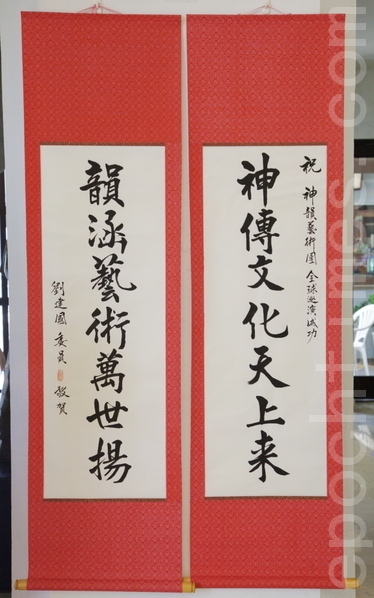 祝 神韻藝術團 全球巡演成功
神傳文化天上来
韻涵藝術萬世揚
劉建國 委員 敬賀
epochtimes.com